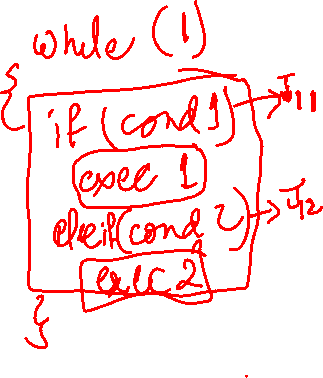 while (1)
{
if (cond 1) → J11
exec 1
elseif (cond 2) → J2
exec 2
}